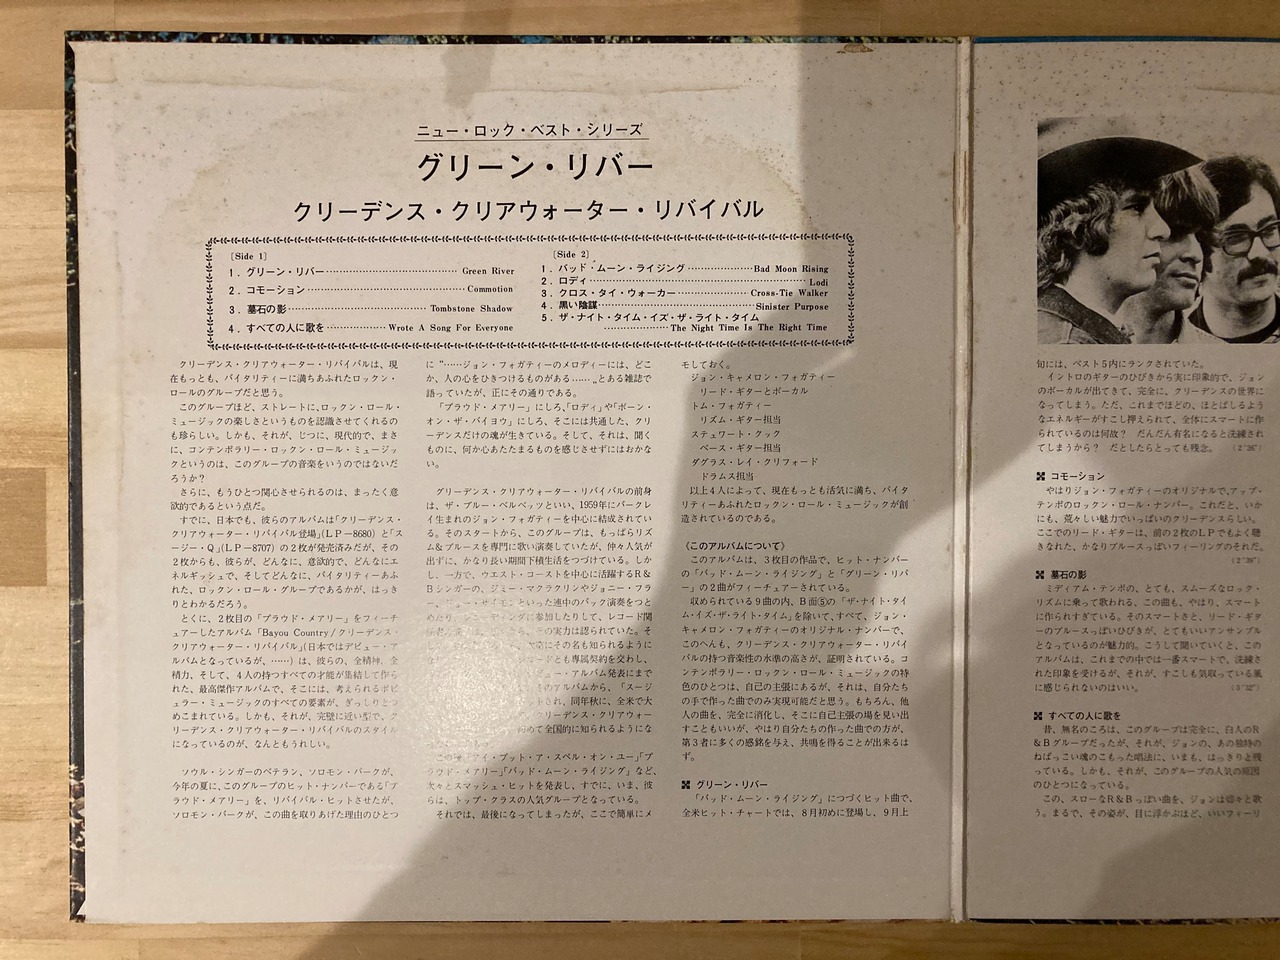 ニュー・ロック・ベスト・シリーズ
グリーン・リバー
クリーデンス・クリアウォーター・リバイバル
〔Side 1〕
1. グリーン・リバー Green River
2. コモーション Commotion
3. 墓石の影 Tombstone Shadow
4. すべての人に歌を Wrote A Song For Everyone
〔Side 2〕
1. バッド・ムーン・ライジング Bad Moon Rising
2. ロディ Lodi
3. クロス・タイ・ウォーカー Cross-Tie Walker
4. 黒い陰謀 Sinister Purpose
5. ザ・ナイト・タイム・イズ・ザ・ライト・タイム
The Night Time Is The Right Time
クリーデンス・クリアウォーター・リバイバルは、現
在もっとも、バイタリティーに満ちあふれたロックン・
ロールのグループだと思う。
このグループほど、ストレートに、ロックン・ロール・
ミュージックの楽しさというものを認識させてくれるの
も珍らしい。しかも、それが、じつに、現代的で、まさ
に、コンテンポラリー・ロックン・ロール・ミュージッ
クというのは、このグループの音楽をいうのではないだ
ろうか？
さらに、もうひとつ関心させられるのは、まったく意
欲的であるという点だ。
すでに、日本でも、彼らのアルバムは「クリーデンス・
クリアウォーター・リバイバル登場」(LP−8680)と「ス
ージー・Q」(LP−8707)の2枚が発売済みだが、その
2枚からも、彼らが、どんなに、意欲的で、どんなにエ
ネルギッシュで、そしてどんなに、バイタリティーあふ
れた、ロックン・ロール・グループであるかが、はっき
りとわかるだろう。
とくに、2枚目の「プラウド・メアリー」をフィーチ
ュアーしたアルバム「Bayou Country/クリーデンス・
クリアウォーター・リバイバル」(日本ではデビュー・ア
ルバムとなっているが、……)は、彼らの、全精神、全
精力、そして、4人の持つすべての才能が集結して作ら
れた、最高傑作アルバムで、そこには、考えられるポピ
ュラー・ミュージックのすべての要素が、ぎっしりとつ
めこまれている。しかも、それが、完璧に近い型で、ク
リーデンス・クリアウォーター・リバイバルのスタイル
になっているのが、なんともうれしい。
ソウル・シンガーのベテラン、ソロモン・バークが、
今年の夏に、このグループのヒット・ナンバーである「プ
ラウド・メアリー」を、リバイバル・ヒットさせたが、
ソロモン・バークが、この曲を取りあげた理由のひとつ
に"……ジョン・フォガティーのメロディーには、どこ
か、人の心をひきつけるものがある……„とある雑誌で
語っていたが、正にその通りである。
「プラウド・メアリー」にしろ、「ロディ」や「ボーン・
オン・ザ・バイヨウ」にしろ、そこには共通した、クリ
ーデンスだけの魂が生きている。そして、それは、聞く
ものに、何か心あたたまるものを感じさせずにはおかな
い。
グリーデンス・クリアウォーター・リバイバルの前身
は、ザ・ブルー・ベルベッツといい、1959年にバークレ
イ生まれのジョン・フォガティーを中心に結成されてい
る。そのスタートから、このグループは、もっぱらリズ
ム&ブルースを専門に歌い演奏していたが、仲々人気が
出ずに、かなり長い期間下積生活をつづけている。しか
し、一方で、ウエスト・コーストを中心に活躍するR&
Bシンガーの、ジミー・マクラクリンやジョニー・フラ
といった連中のバック演奏をつと
に参加したりして、レコード関
その実力は認られていた。そ
にその名も知られるように
とも専属契約を交わし、
・アルバム発売までに
のアルバムから、「スージ
され、同年秋に、全米で大
クリーデンス・クリアウォー
めて全国的に知られるようにな
「アイ・プット・ア・スペル・オン・ユー」「プ
ラウド・メアリー」「バッド・ムーン・ライジング」など、
次々とスマッシュ・ヒットを発表し、すでに、いま、彼
らは、トップ・クラスの人気グループとなっている。
それでは、最後になってしまったが、ここで簡単にメ
モしておく。
ジョン・キャメロン・フォガティー
リード・ギターとボーカル
トム・フォガティー
リズム・ギター担当
ステュワート・クック
ベース・ギター担当
ダグラス・レイ・クリフォード
ドラムス担当
以上4人によって、現在もっとも活気に満ち、バイタ
リティーあふれたロックン・ロール・ミュージックが創
造されているのである。
《このアルバムについて》
このアルバムは、3枚目の作品で、ヒット・ナンバー
の「バッド・ムーン・ライジング」と「グリーン・リバ
ー」の2曲がフィーチュアーされている。
収められている9曲の内、B面⑤の「ザ・ナイト・タイ
ム・イズ・ザ・ライト・タイム」を除いて、すべて、ジョン・
キャメロン・フォガティーのオリジナル・ナンバーで、
このへんも、クリーデンス・クリアウォーター・リバイ
バルの持つ音楽性の水準の高さが、証明されている。コ
ンテンポラリー・ロックン・ロール・ミュージックの特
色のひとつは、自己の主張にあるが、それは、自分たち
の手で作った曲でのみ実現可能だと思う。もちろん、他
人の曲を、完全に消化し、そこに自己主張の場を見い出
すこともいいが、やはり自分たちの作った曲での方が、
第3者に多くの感銘を与え、共鳴を得ることが出来るは
ず。
グリーン・リバー
「バッド・ムーン・ライジング」につづくヒット曲で、
全米ヒット・チャートでは、8月初めに登場し、9月上
旬には、ベスト5内にランクされていた。
イントロのギターのひびきから実に印象的で、ジョン
のボーカルが出てきて、完全に、クリーデンスの世界に
なってしまう。ただ、これまでほどの、ほとばしるよう
なエネルギーがすこし押えられて、全体にスマートに作
られているのは何故？ だんだん有名になると洗練され
てしまうから？ だとしたらとっても残念。
コモーション
やはりジョン・フォガティーのオリジナルで、アップ・
テンポのロックン・ロール・ナンバー。これだと、いか
にも、荒々しい魅力でいっぱいのクリーデンスらしい。
ここでのリード・ギターは、前の2枚のLPでもよく聴
きなれた、かなりブルースっぽいフィーリングのそれだ。
墓石の影
ミディアム・テンポの、とても、スムーズなロック・
リズムに乗って歌われる、この曲も、やはり、スマート
に作られすぎている。そのスマートさと、リード・ギタ
ーのブルースっぽいひびきが、とてもいいアンサンブル
となっているのが魅力的。こうして聞いていくと、この
アルバムは、これまでの中では一番スマートで、洗練さ
れた印象を受けるが、それが、すこしも気取っている風
に感じられないのはいい。
すべての人に歌を
昔、無名のころは、このグループは完全に、白人のR
&Bグループだったが、それが、ジョンの、あの独特の
ねばっこい魂のこもった唱法に、いまも、はっきりと残
っている。しかも、それが、このグループの人気の原因
のひとつになっている。
この、スローなR&Bっぽい曲を、ジョンは堂々と歌
う。まるで、その姿が、目に浮かぶほど、いいフィーリ